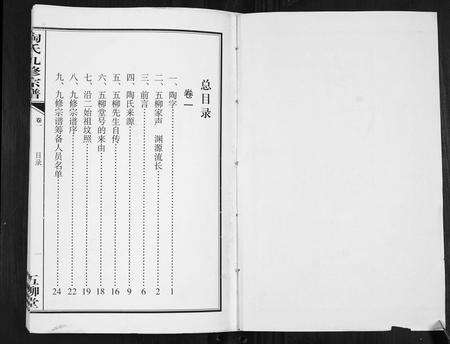 总目录
卷一
一、陶字 1
二、五柳家声 渊源流长 2
三、前言 6
四、陶氏来源 9
五、五柳先生自传 16
六、五柳堂号的来由 18
七、沿二始祖坟照 19
八、九修宗谱序 22
九、九修宗谱筹备人员名单 24
陶氏九修宗谱
卷一
目录
一
五柳堂